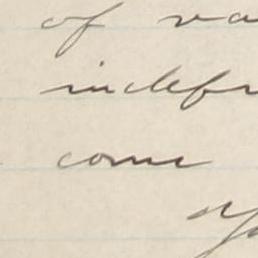 of va
indefi
come